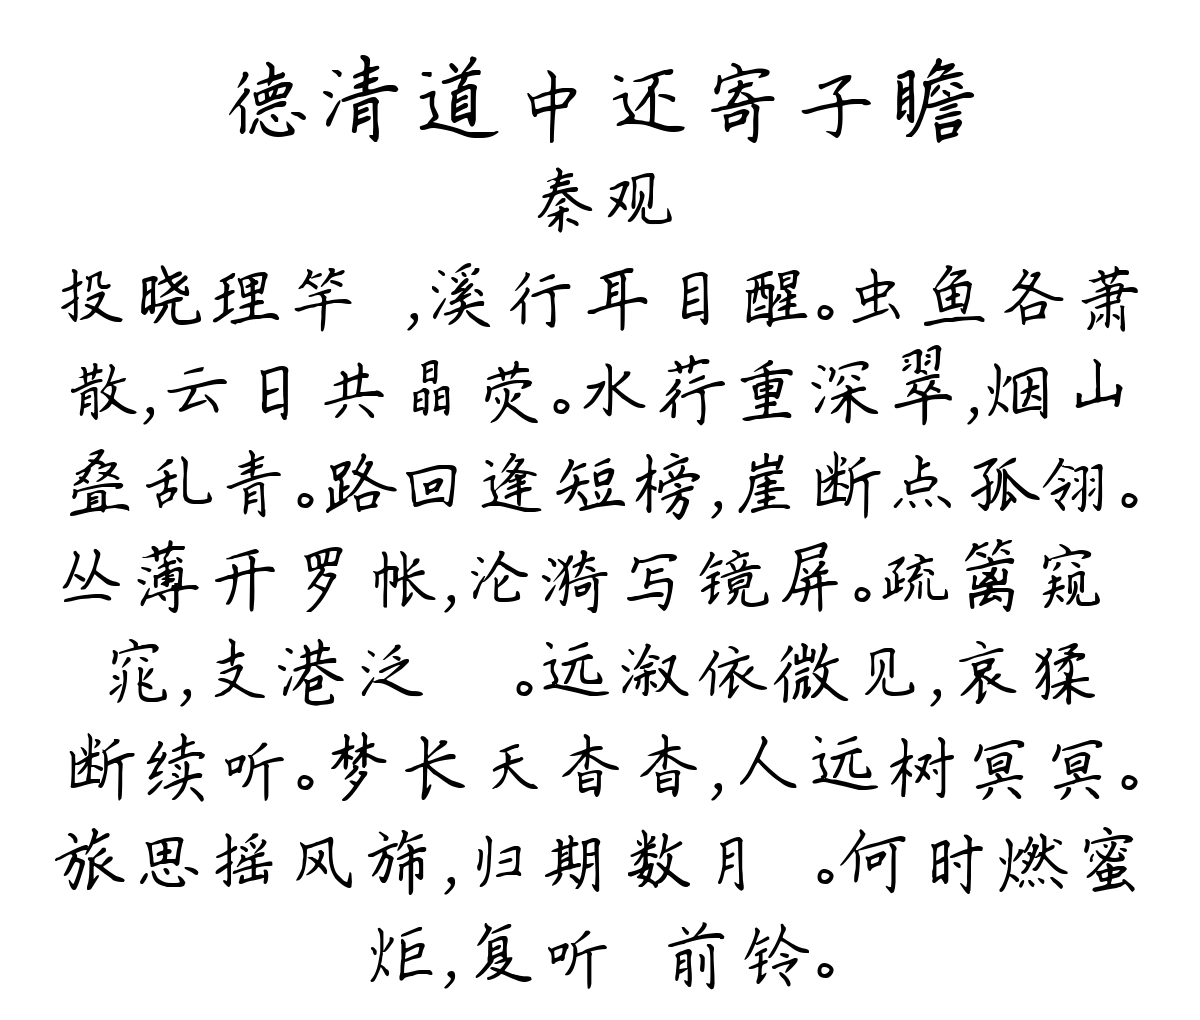 德清道中还寄子瞻
秦观
投晓理竿 ,溪行耳目醒。虫鱼各萧
散,云日共晶荧。水荇重深翠,烟山
叠乱青。路回逢短榜,崖断点孤翎。
丛薄开罗帐,沦漪写镜屏。疏篱窥
窕,支港泛 。远溆依微见,哀猱
断续听。梦长天杳杳,人远树冥冥。
旅思摇风旆,归期数月 。何时燃蜜
炬,复听 前铃。